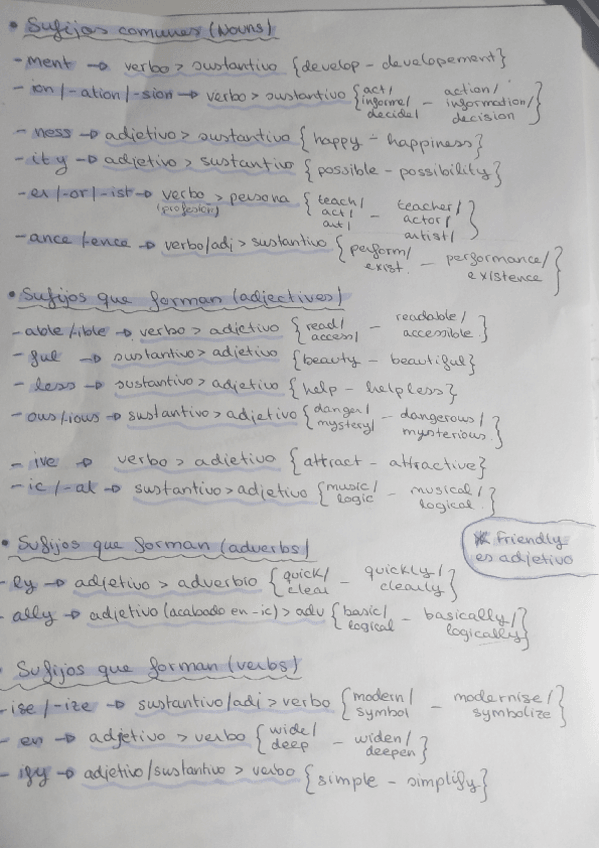 • Sufijos comunes (Nouns)
- ment → verbo > sustantivo {develop - developement}
- ion/-ation/-sion → verbo > sustantivo {act/ informe/ decide/ - action/ information/ decision}
- ness → adjetivo > sustantivo {happy - happiness}
- ity → adjetivo > sustantivo {possible - possibility}
- er/-or/-ist → verbo > persona {teach/ act/ art/ - teacher/ actor/ artist/}
(profesión)
- ance/ence → verbo/adj > sustantivo {perform/ exist - performance/ existence}
• Sufijos que forman (adjectives)
- able/ible → verbo > adjetivo {read/ access/ - readable/ accessible}
- ful → sustantivo > adjetivo {beauty - beautiful}
- less → sustantivo > adjetivo {help - helpless}
- ous/ious → sustantivo > adjetivo {danger/ mystery/ - dangerous/ mysterious}
- ive → verbo > adjetivo {attract - attractive}
- ic/-al → sustantivo > adjetivo {music/ logic - musical/ logical}
* friendly
es adjetivo
• Sufijos que forman (adverbs)
- ly → adjetivo > adverbio {quick/ clear - quickly/ clearly}
- ally → adjetivo (acabado en -ic) > adv {basic/ logical - basically/ logically}
• Sufijos que forman (verbs)
- ise/-ize → sustantivo/adj > verbo {modern/ symbol - modernise/ symbolize}
- en → adjetivo > verbo {wide/ deep - widen/ deepen}
- ify → adjetivo/sustantivo > verbo {simple - simplify}